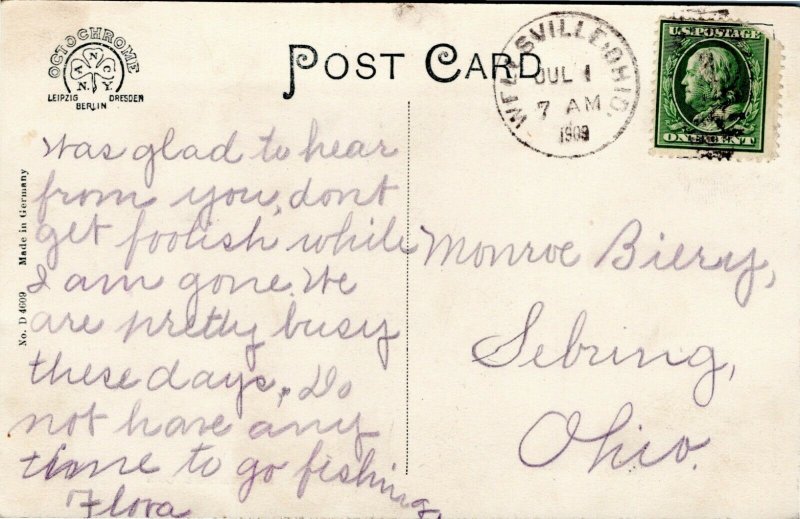 OCTOCHROME
A N C
N. Y.
LEIPZIG DRESDEN
BERLIN
POST CARD
WELLSVILLE, OHIO.
JUL 1
7 AM
1909
U.S. POSTAGE
ONE CENT
No. D 4609 Made in Germany
Was glad to hear
from you, dont
get foolish while
I am gone. We
are pretty busy
these days. Do
not have any
time to go fishing,
Flora
Monroe Biery,
Sebring,
Ohio.